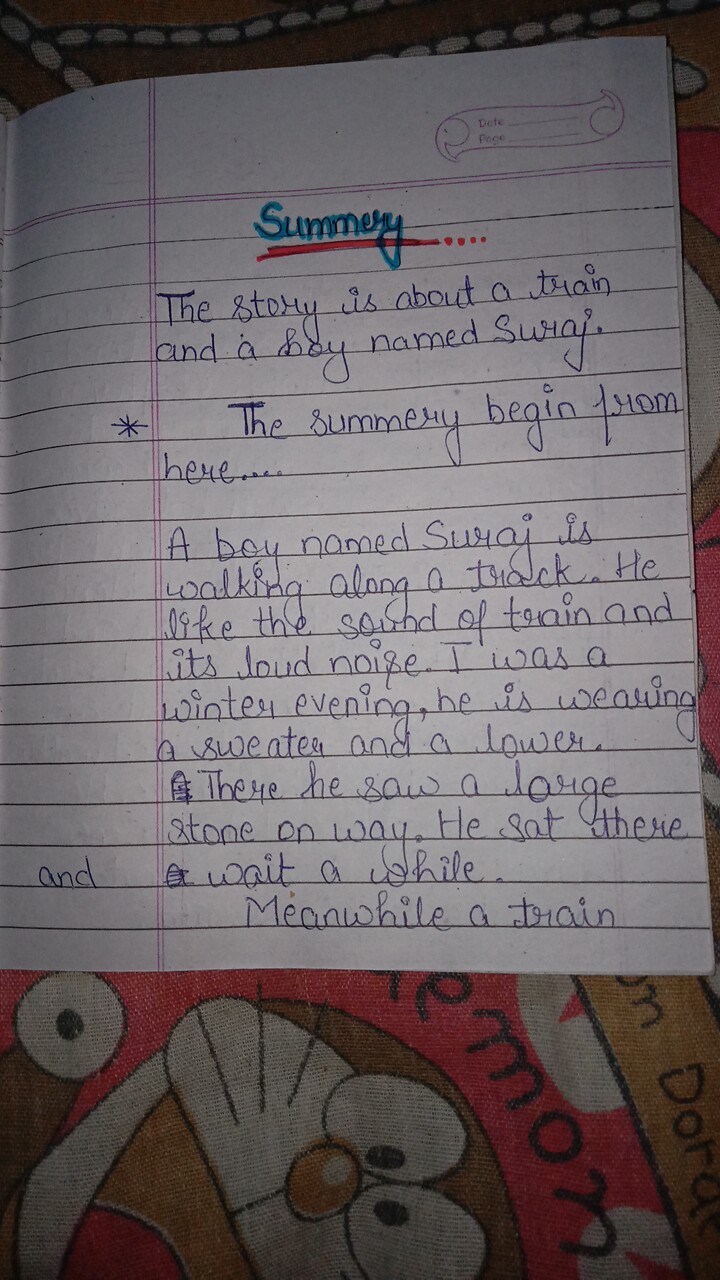 Date
Page
Summery ....
The story is about a train
and a boy named Suraj.
* The summery begin from
here....
A boy named Suraj is
walking along a track. He
like the sound of train and
its loud noise. I was a
winter evening, he is wearing
a sweater and a lower.
There he saw a large
stone on way. He sat there
and wait a while.
Meanwhile a train
emon
on Dorae